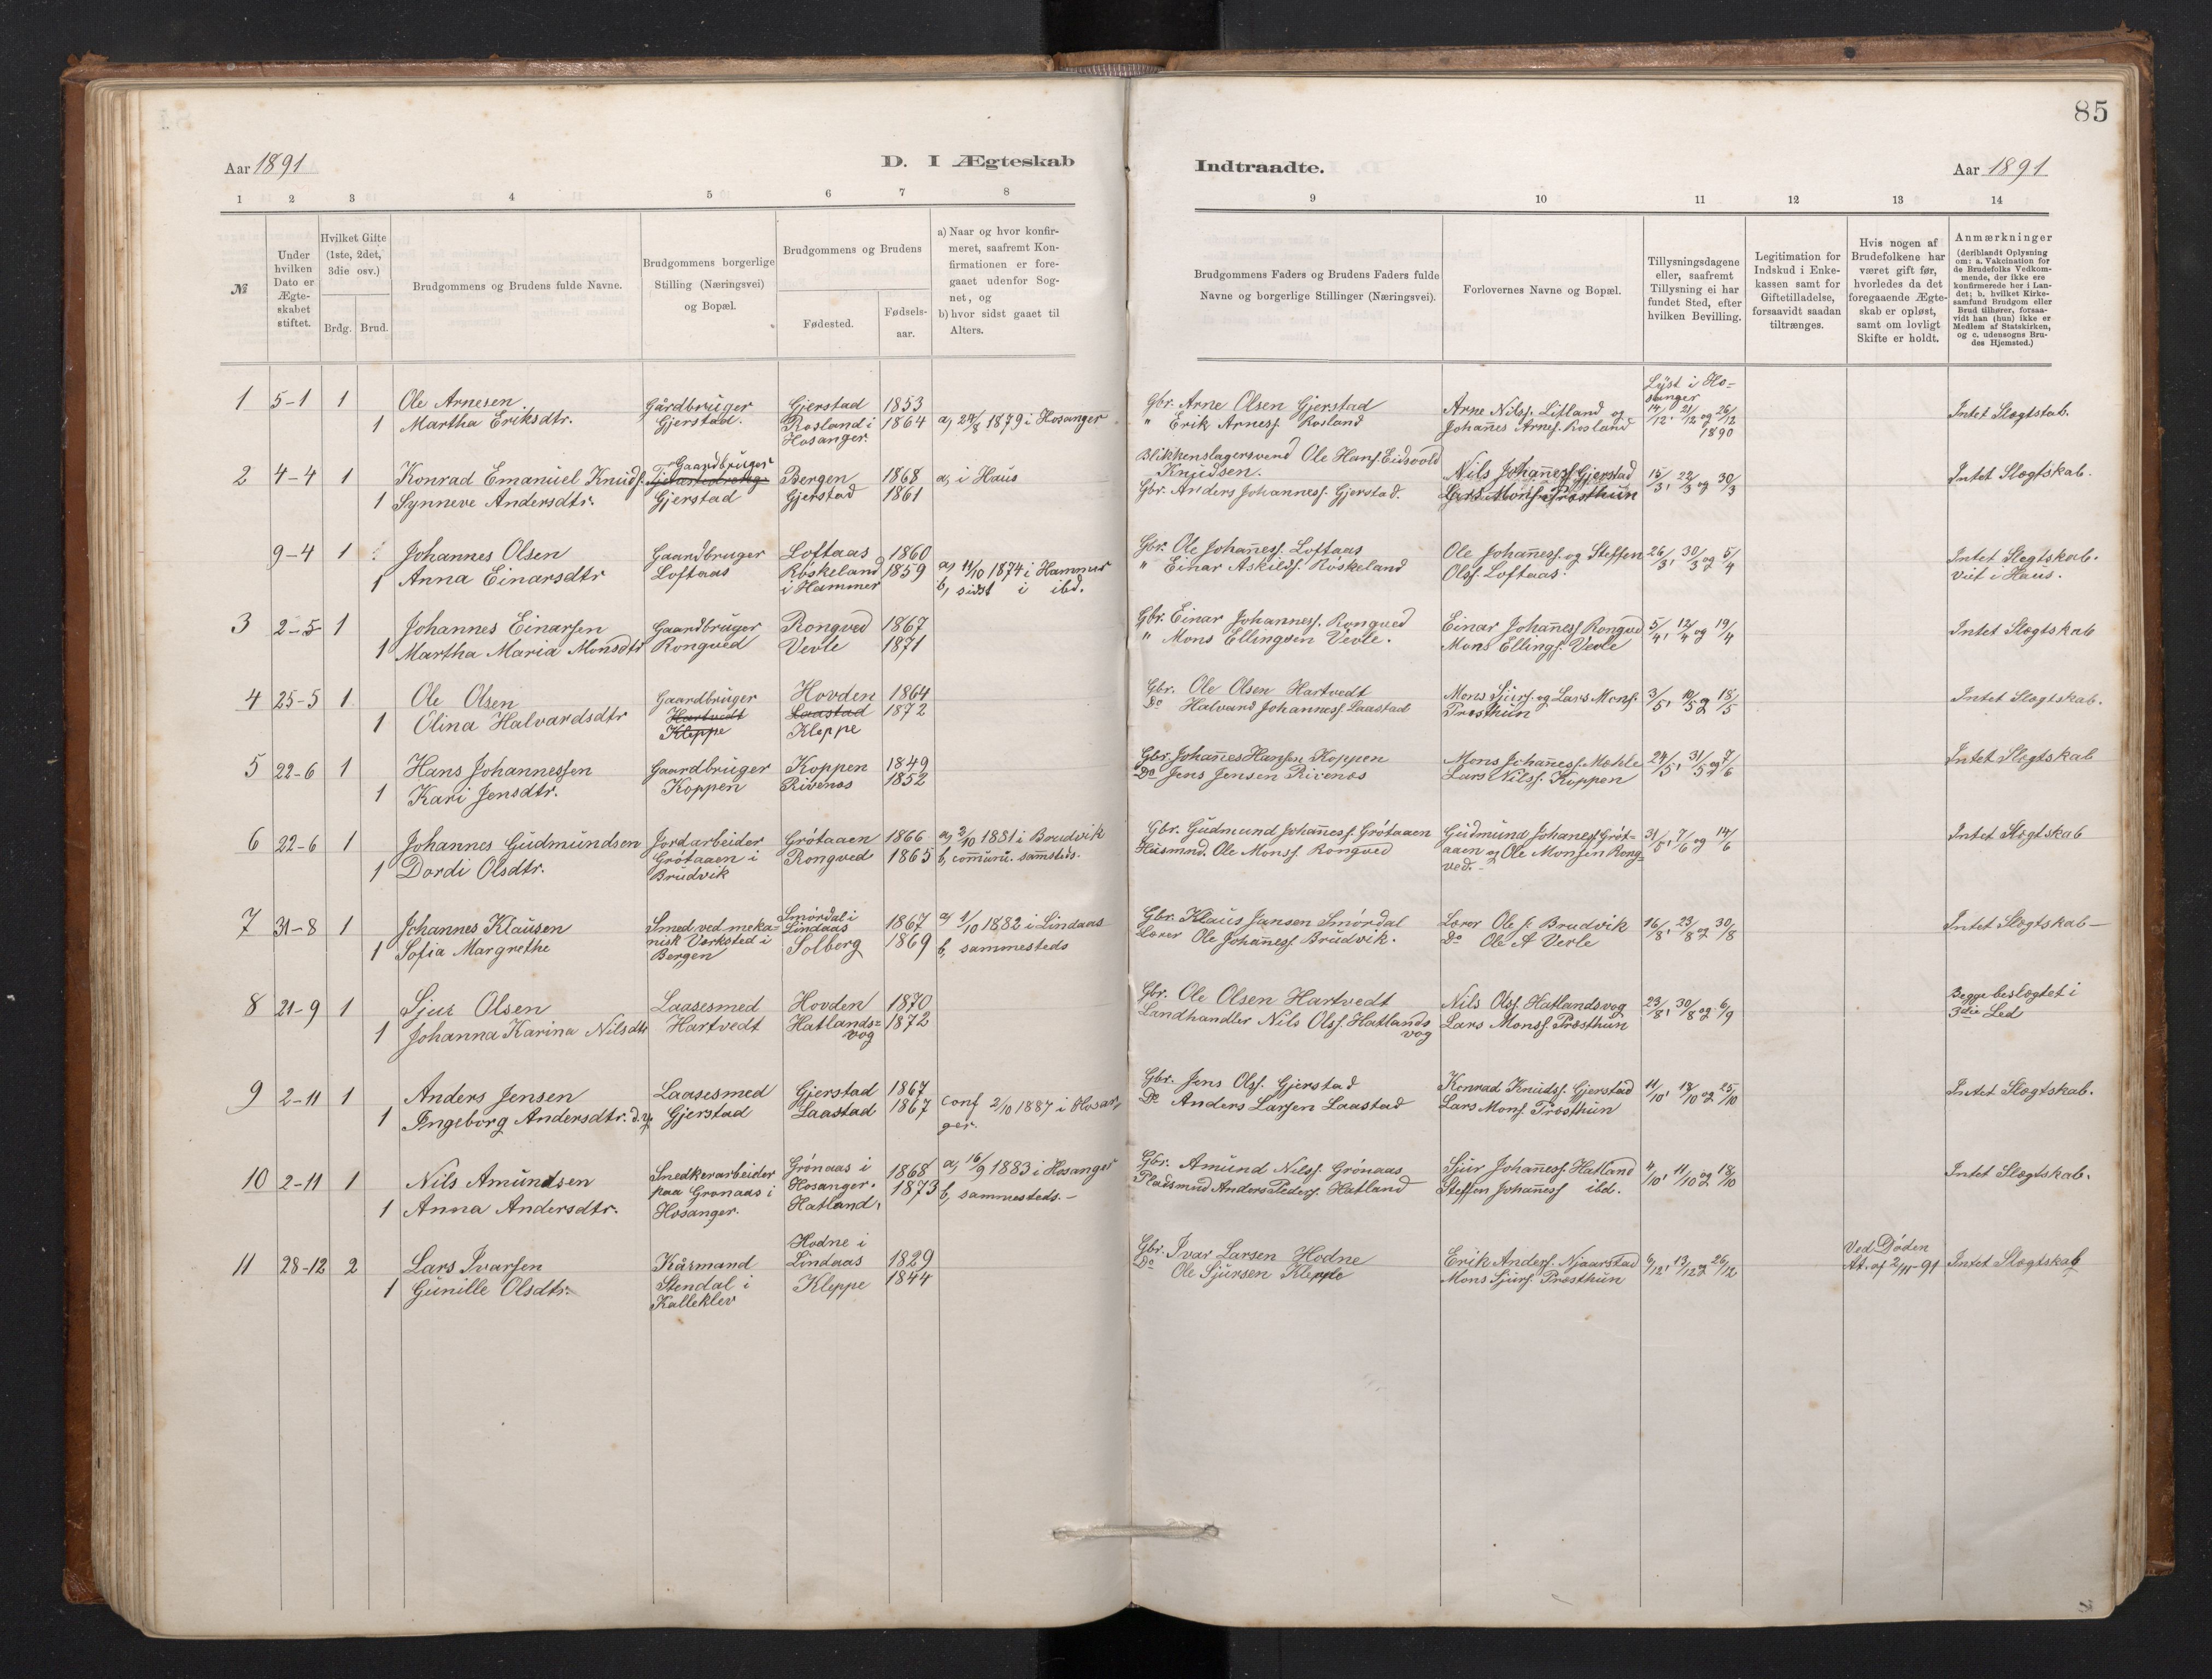 85
Aar 1891
D. I Ægteskab
Indtraadte.
Aar 1891
1 2 3 4 5 6 7 8 9 10 11 12 13 14
№
Under hvilken Dato er Ægte-skabet stiftet.
Hvilket Gifte (1ste, 2det, 3die osv.)
Brdg. Brud.
Brudgommens og Brudens fulde Navne.
Brudgommens borgerlige Stilling (Næringsvei) og Bopæl.
Brudgommens og Brudens
Fødested.
Fødsels-aar.
a) Naar og hvor konfir-meret, saafremt Kon-firmationen er fore-gaaet udenfor Sog-net, og
b) hvor sidst gaaet til Alters.
Brudgommens Faders og Brudens Faders fulde Navne og borgerlige Stillinger (Næringsvei).
Forlovernes Navne og Bopæl.
Tillysningsdagene eller, saafremt Tillysning ei har fundet Sted, efter hvilken Bevilling.
Legitimation for Indskud i Enke-kassen samt for Giftetilladelse, forsaavidt saadan tiltrænges.
Hvis nogen af Brudefolkene har været gift før, hvorledes da det foregaaende Ægte-skab er opløst, samt om lovligt Skifte er holdt.
Anmærkninger
(deriblandt Oplysning om: a. Vakcination for de Brudefolks Vedkom-mende, der ikke ere konfirmerede her i Lan-det; b. hvilket Kirke-samfund Brudgom eller Brud tilhører, forsaa-vidt han (hun) ikke er Medlem af Statskirken, og c. udensogns Bru-des Hjemsted.)
1 5-1 1 Ole Arnesen Gårdbruger Gjerstad 1853
1 Martha Eriksdtr. Gjerstad. Rosland i Hosanger. 1864 a, 24/8 1879 i Hosanger
Gbr. Arne Olsen Gjerstad
" Erik Arness. Rosland
Arne Nilss. Litland og
Johannes Arness. Rosland
Lyst i Ho-
sanger
14/12, 21/12 og 26/12
1890
Intet Slægtskab.
2 4-4 1 Konrad Emanuel Knuds. Gaardbruger Bergen 1868 a, i Haus
1 Synneve Andersdtr. Gjerstad Gjerstad 1861
Blikkenslagersvend Ole Hans. Eidsvold
Knudsen.
Gbr. Anders Johanness. Gjerstad.
Nils Johanness. Gjerstad
Lars Mons. Præsthun
15/3, 22/3 og 30/3
Intet Slægtskab.
9-4 1 Johannes Olsen Gaardbruger Loftaas 1860
1 Anna Einarsdtr Loftaas Röskeland i Hammer 1859 a, 11/10 1874 i Hammer
b, sidst i ibd.
Gbr. Ole Johanness. Loftaas
" Einar Askilds. Röskeland
Ole Johanness. og Steffen
Olss. Loftaas.
26/3, 30/3 og 5/4
Intet Slegtskab.
Viet i Haus.
3 2-5 1 Johannes Einarsen Gaardbruger Rongved 1867
1 Martha Maria Monsdtr Rongved Vevle 1871
Gbr. Einar Johanness. Rongved
" Mons Ellingsen Vevle.
Einar Johanness Rongved
Mons Ellings. Vevle
5/4, 12/4 og 19/4
Intet Slægtskab
4 25-5 1 Ole Olsen Gaardbruger Hovden 1864
1 Olina Halvardsdtr Hartvedt Laastad 1872
Kleppe Kleppe
Gbr. Ole Olsen Hartvedt
Do Halvard Johanness. Laastad
Mons Sjurs. og Lars Mons.
Præsthun
3/5, 10/5 og 18/5
Intet Slægtskab.
5 22-6 1 Hans Johannessen Gaardbruger Koppen 1849
1 Kari Jensdtr. Koppen Rivenæs 1852
Gbr. Johannes Hansen Koppen
Do Jens Jensen Rivenæs
Mons Johanness. Mæhle
Lars Nilss. Koppen
24/5, 31/5 og 7/6
Intet Slægtskab
6 22-6 1 Johannes Gudmundsen Jordarbeider Grötaaen 1866 a, 2/10 1881 i Brudvik
1 Dordi Olsdtr. Grötaaen i Brudvik Rongved 1865 b, commun. sammsteds.
Gbr. Gudmund Johanness. Grötaaen
Husmnd. Ole Monss. Rongved
Gudmund Johaness. Gröt-
aaen og Ole Monsen Rong-
ved.
31/5, 7/6 og 14/6
Intet Slægtskab
7 31-8 1 Johannes Klausen Smed ved meka- Smørdal i Lindaas 1867 a, 1/10 1882 i Lindaas
1 Sofia Margrethe nisk Værksted i Bergen Solberg 1869 b, sammesteds
Gbr. Klaus Jansen Smördal
Lærer Ole Johanness Brudvik.
Lærer Ole J. Brudvik
Do Ole A Vevle
16/8, 23/8 og 30/8
Intet Slægtskab
8 21-9 1 Sjur Olsen Laasesmed Hovden 1870
1 Johanna Karina Nilsdtr Hartvedt Hatlands-vog 1872
Gbr. Ole Olsen Hartvedt
Landhandler Nils Olss. Hatlands
vog
Nils Olss. Hatlandsvog
Lars Monss. Præsthun
23/8, 30/8 og 6/9
Begge beslægtet i
3die Led
9 2-11 1 Anders Jensen Laasesmed Gjerstad 1867
1 Ingeborg Andersdtr. d.y. Gjerstad Laastad 1867 conf 2/10 1887 i Hosan-
ger.
Gbr. Jens Olss. Gjerstad
Do Anders Larsen Laastad
Konrad Knudss. Gjerstad
Lars Mons. Præsthun
11/10, 18/10 og 25/10
Intet Slægtskab.
10 2-11 1 Nils Amundsen Snedkerarbeider Grønaas i Hosanger. 1868 a, 16/9 1883 i Hosanger
1 Anna Andersdtr. paa Grønaas i Hosanger. Hatland. 1873 b, sammesteds.
Gbr. Amund Nilss. Grönaas
Pladsmnd Anders Peders. Hatland
Sjur Johanness. Hatland
Steffen Johanness ibd.
4/10, 11/10 og 18/10
Intet Slægtskab.
11 28-12 2 Lars Ivarsen Kårmand Hodne i Lindaas 1829
1 Gunille Olsdtr. Stendal i Kalleklev Kleppe 1844
Gbr. Ivar Larsen Hodne
Do Ole Sjursen Kleppe
Erik Anderss. Njaarstad
Mons Sjurs. Præsthun
6/12, 13/12 og 26/12
Ved Døden
At. af 2/11-91
Intet Slægtskab